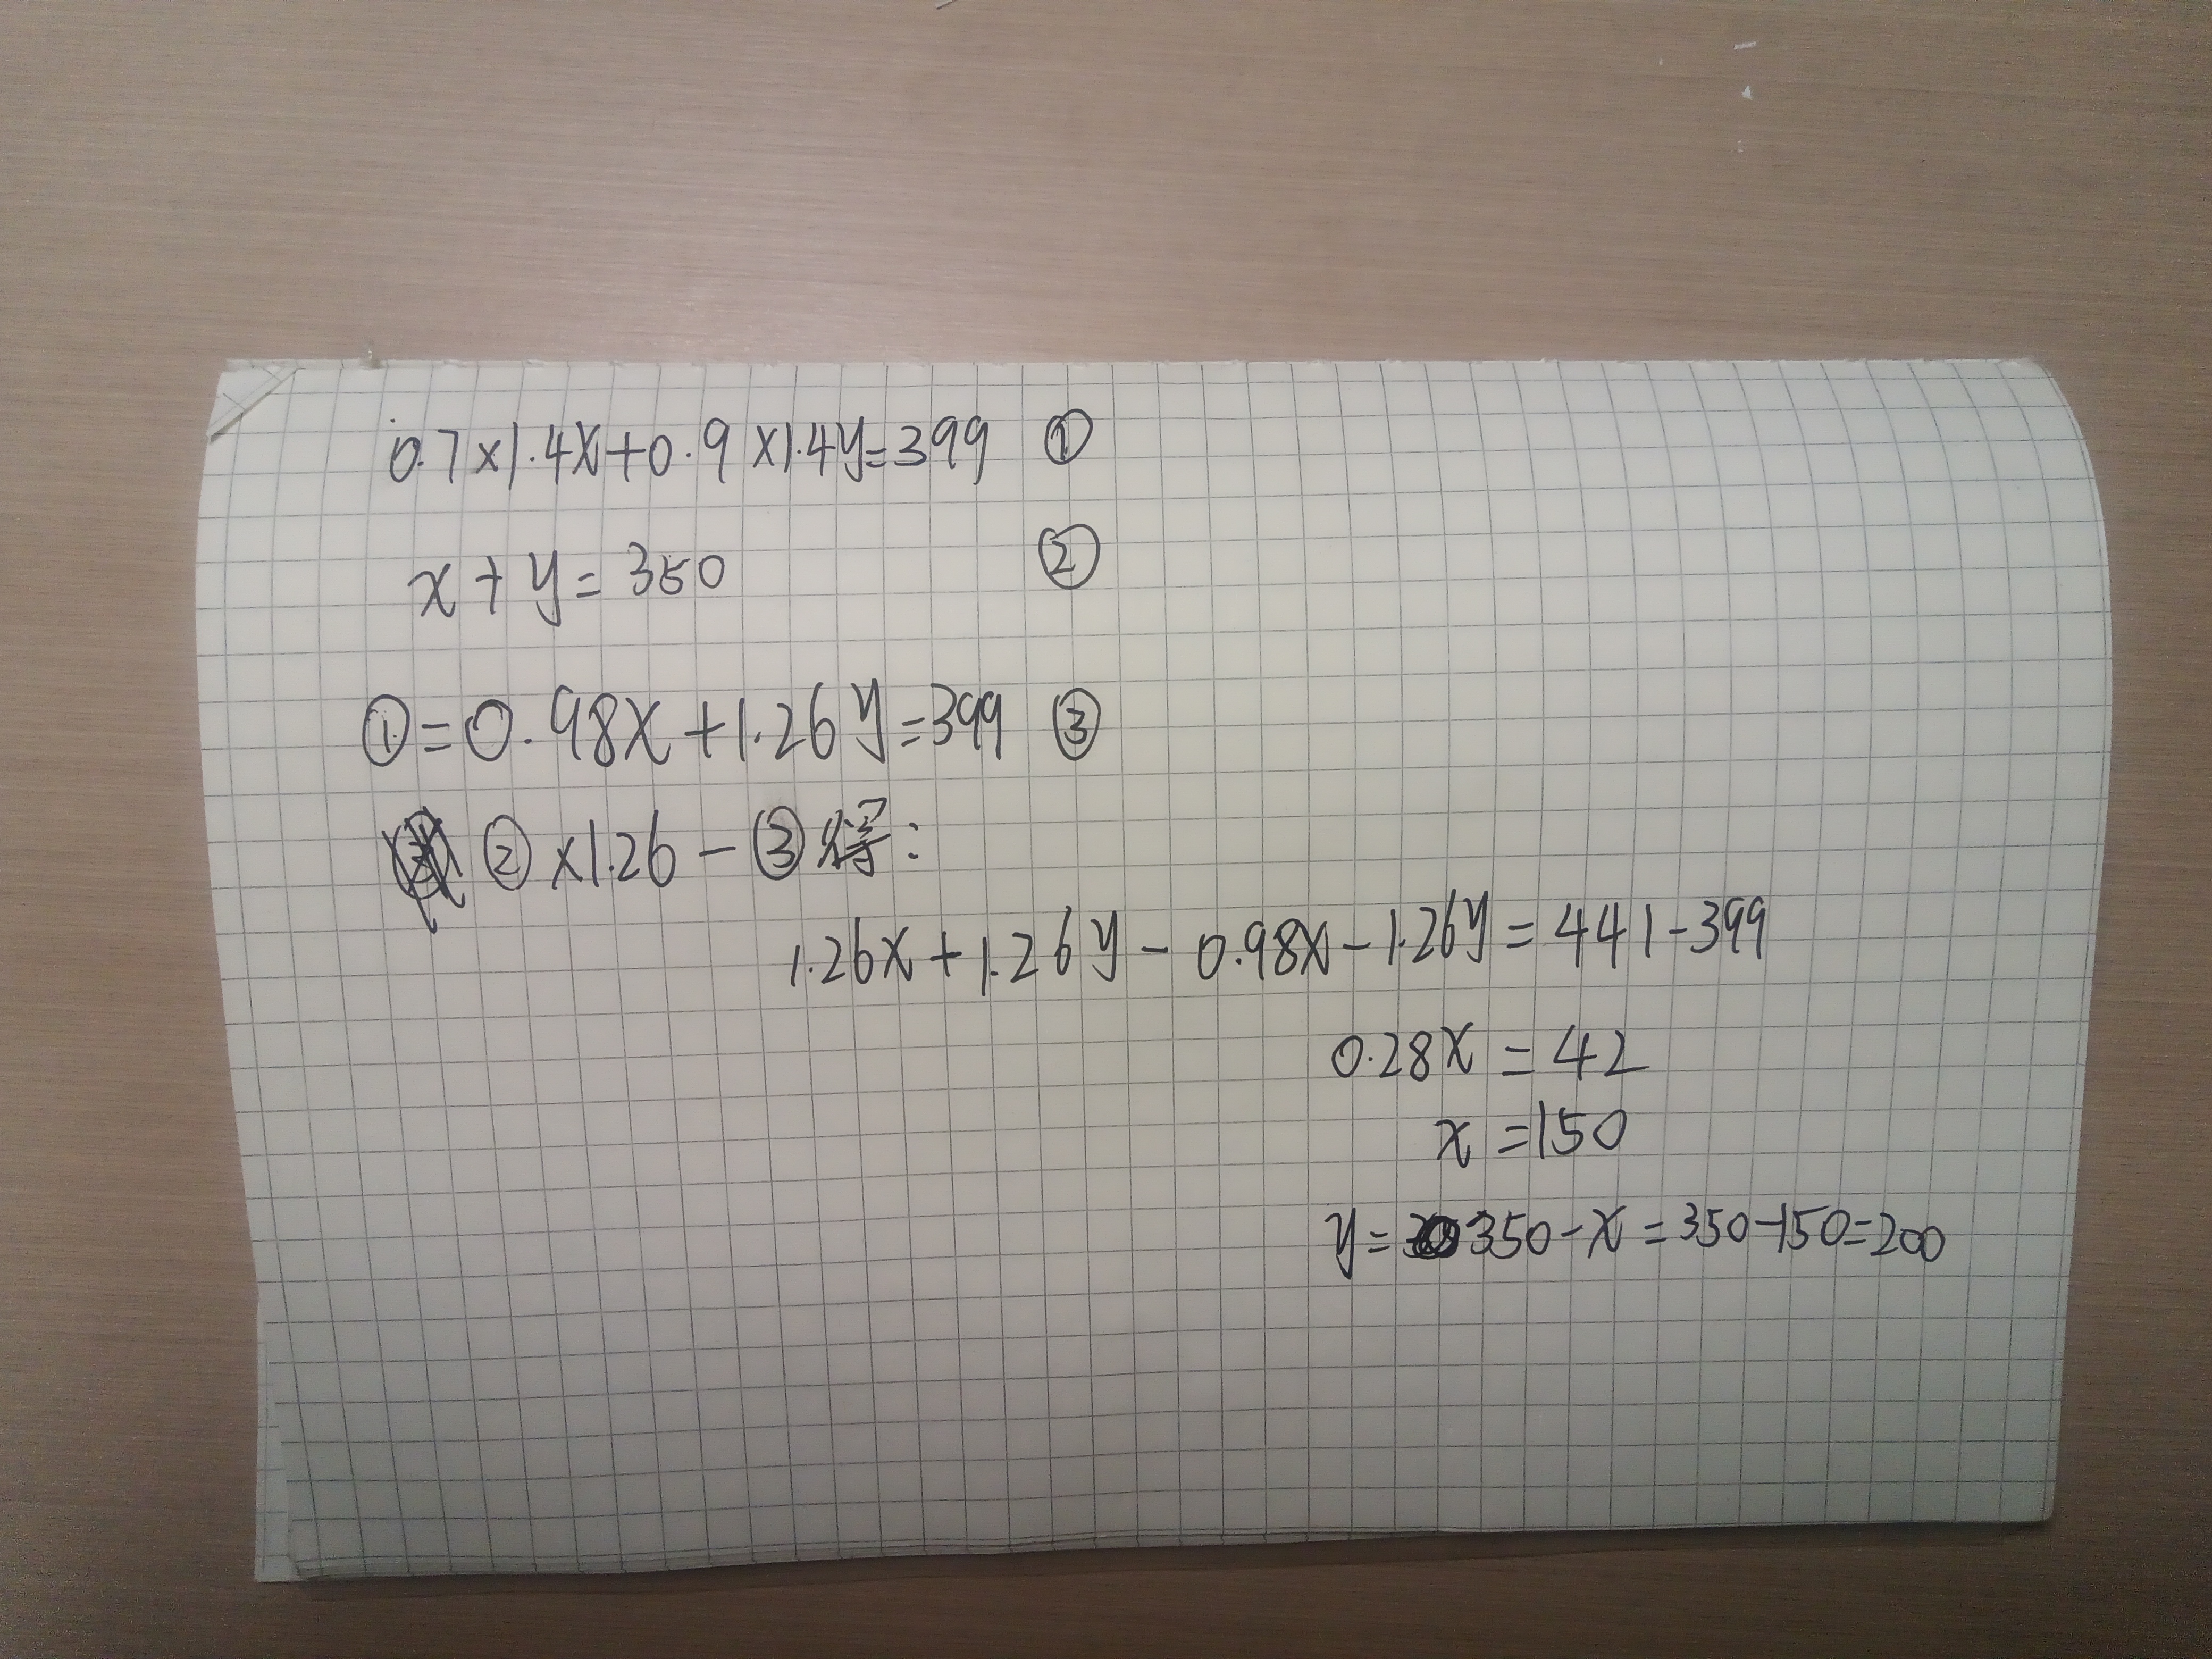 0.7×1.4x+0.9×1.4y=399 ①
x+y=350 ②
①=0.98x+1.26y=399 ③
②×1.26-③得:
1.26x+1.26y-0.98x-1.26y=441-399
0.28x=42
x=150
y=350-x=350-150=200